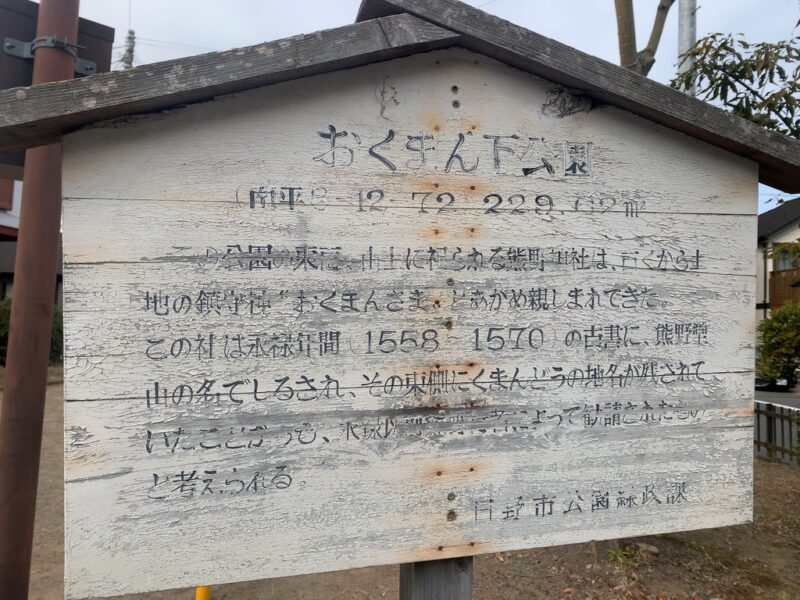 おくまん下公園
(南平 12 72 229. 2㎡
の公園の東 山上に祀られる熊野神社は、古くから土
地の鎮守神"おくまんさま"とあがめ親しまれてきた。
この社は永禄年間(1558～1570)の古書に、熊野堂
山の名でしるされ、その東側にくまんどうの地名が残されて
いたことからも、永禄以前 によって勧請されたもの
と考えられる。
日野市公園緑政課